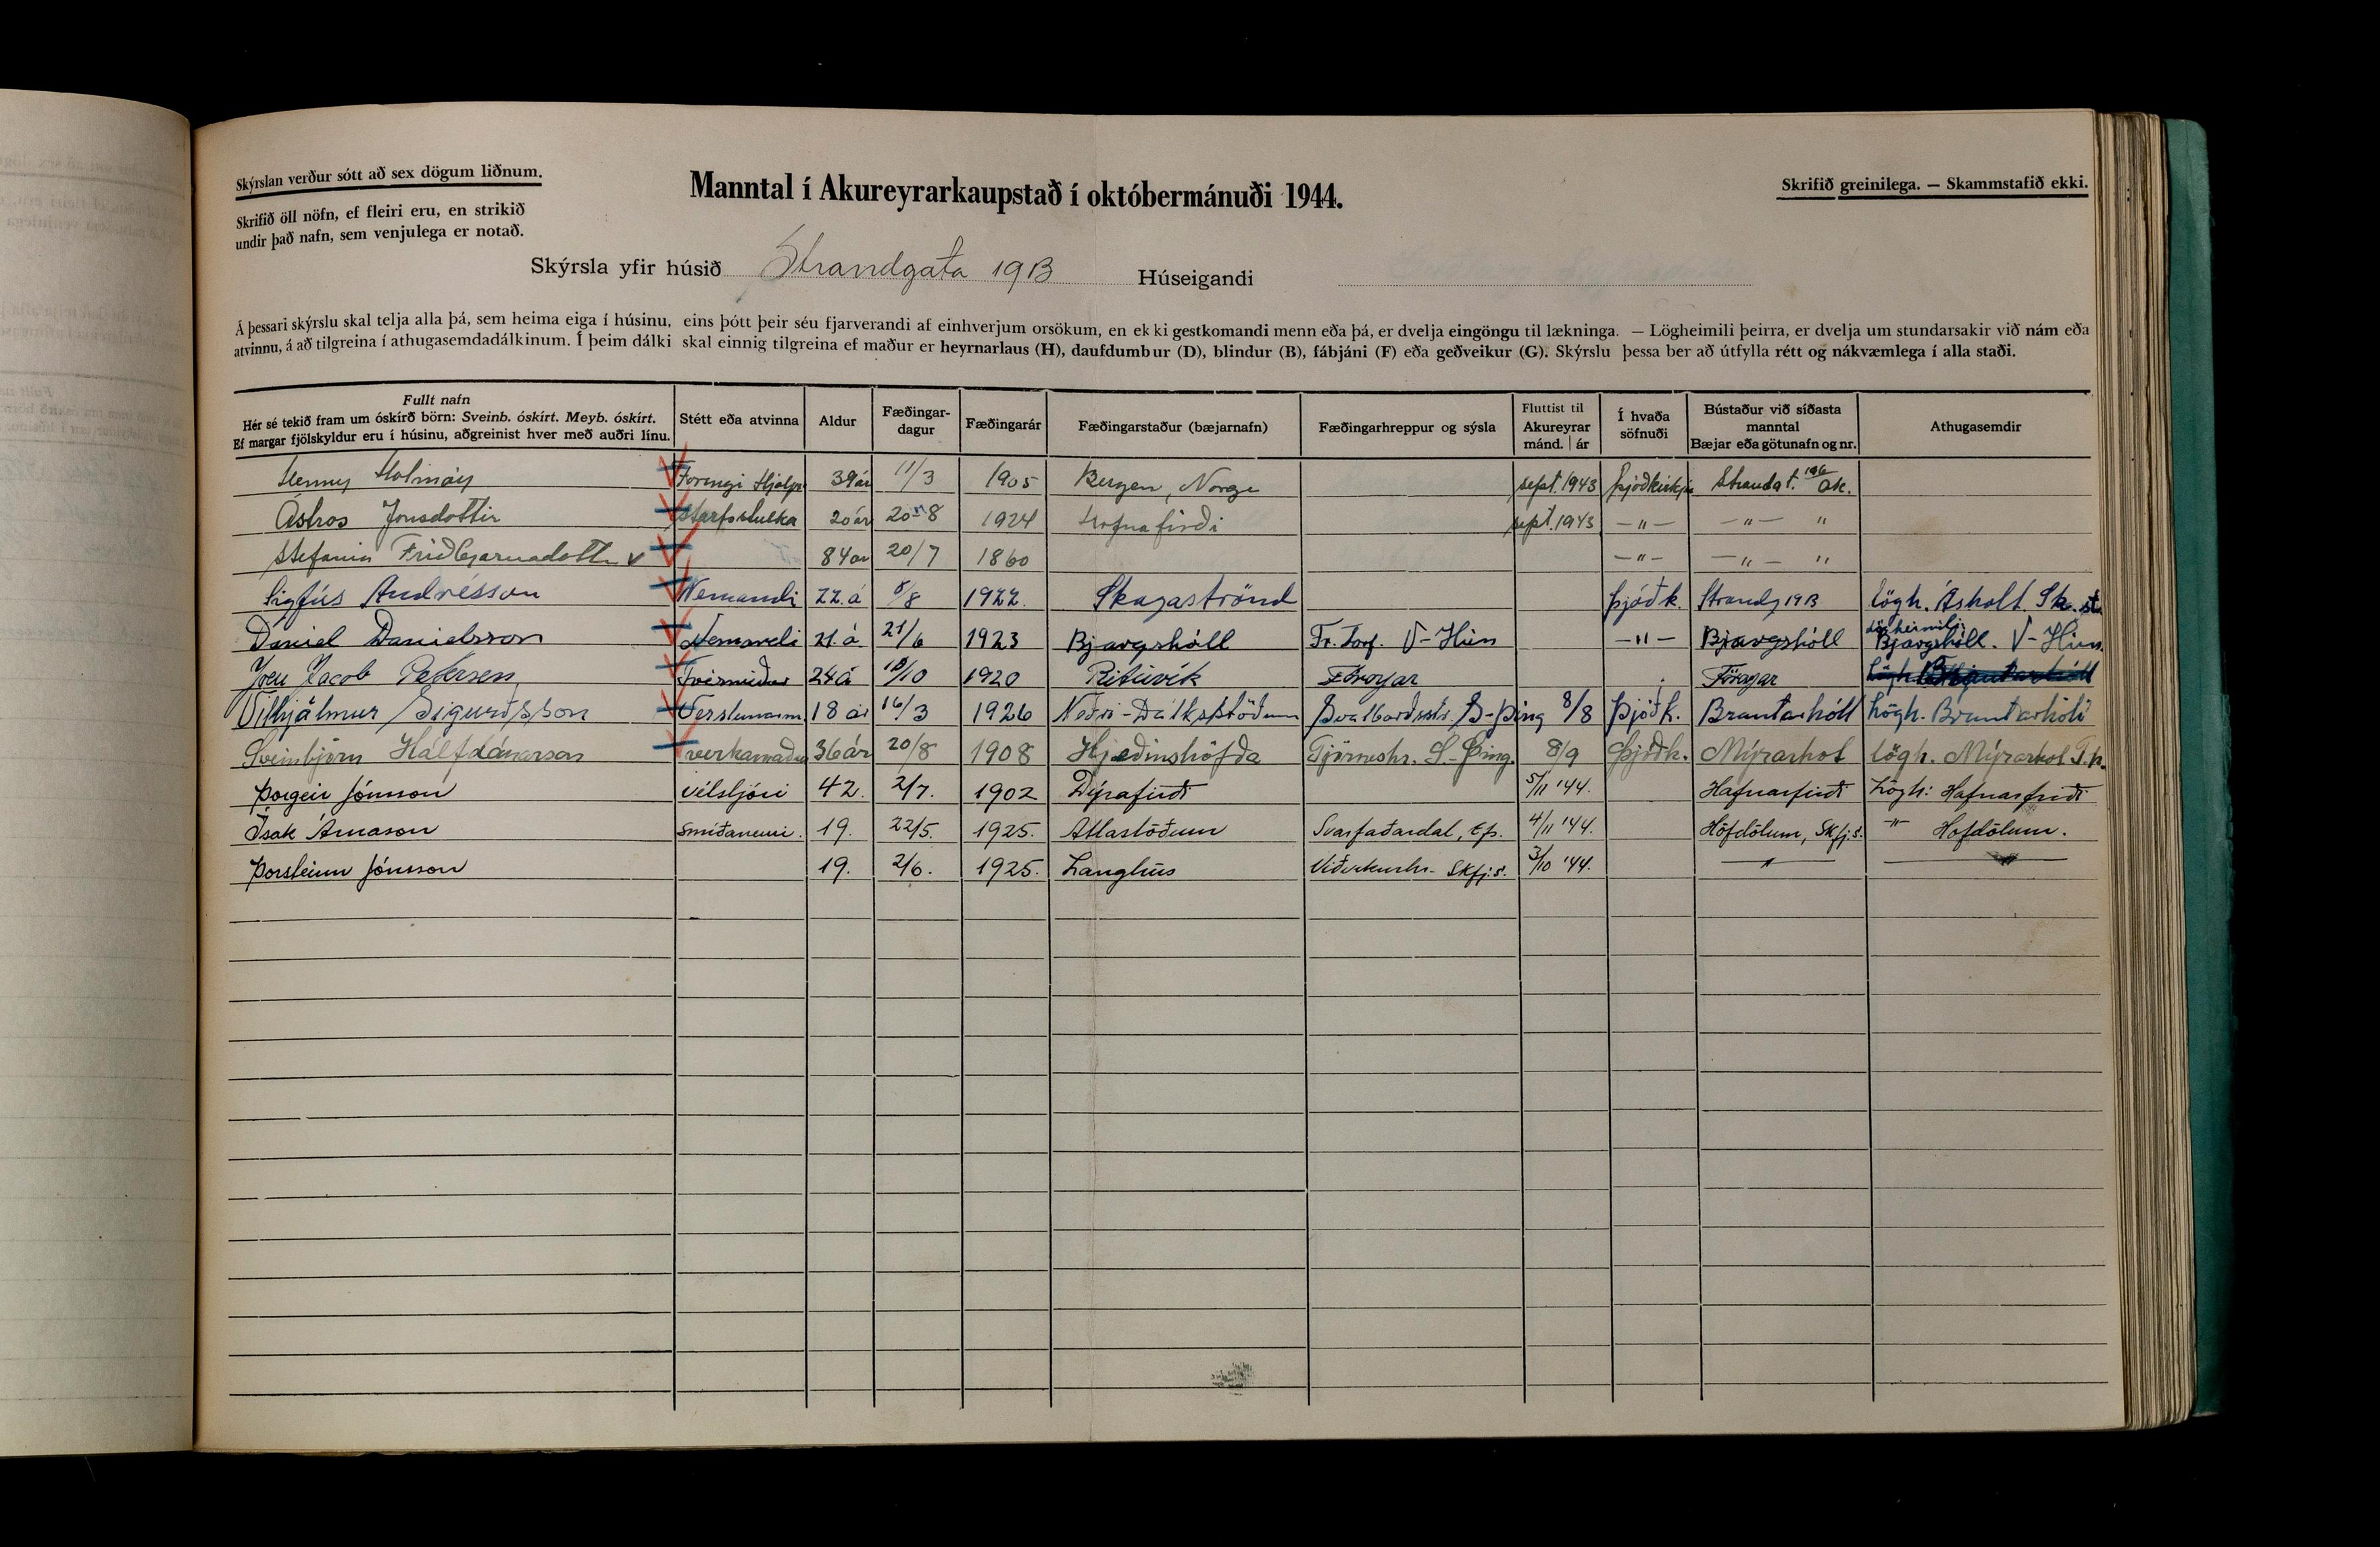 Skýrslan verður sótt að sex dögum liðnum.
Skrifið öll nöfn, ef fleiri eru, en strikið
undir það nafn, sem venjulega er notað.
Manntal í Akureyrarkaupstað í októbermánuði 1944.
Skrifið greinilega. — Skammstafið ekki.
Skýrsla yfir húsið Strandgata 19B Húseigandi
Á þessari skýrslu skal telja alla þá, sem heima eiga í húsinu, eins þótt þeir séu fjarverandi af einhverjum orsökum, en ekki gestkomandi menn eða þá, er dvelja eingöngu til lækninga. — Lögheimili þeirra, er dvelja um stundarsakir við nám eða
atvinnu, á að tilgreina í athugasemdadálkinum. Í þeim dálki skal einnig tilgreina ef maður er heyrnarlaus (H), daufdumbur (D), blindur (B), fábjáni (F) eða geðveikur (G). Skýrslu þessa ber að útfylla rétt og nákvæmlega í alla staði.
Fullt nafn
Hér sé tekið fram um óskírð börn: Sveinb. óskírt. Meyb. óskírt.
Ef margar fjölskyldur eru í húsinu, aðgreinist hver með auðri línu.
Stétt eða atvinna
Aldur
Fæðingar-
dagur
Fæðingarár
Fæðingarstaður (bæjarnafn)
Fæðingarhreppur og sýsla
Fluttist til
Akureyrar
mánd. | ár
Í hvaða
söfnuði
Bústaður við síðasta
manntal
Bæjar eða götunafn og nr.
Athugasemdir
Henny Foringi Hjálpr 39 ár 11/3 1905 Bergen, Norge sept. 1943 Þjóðkirkju Strandgt. 19b Ak.
Ástros Jonsdottir starfstulka 20 ár 20 8 1924 Hofnafirði sept. 1943 —"— —"— "
Stefania Friðbjarnadottir v 84 ár 20/7 1860 —"— —"— "
Sigfús Andrésson Nemandi 22. á 5/8 1922. Skagaströnd Þjóðk. Strandg 19B lögh. Ásholt. Sk.st.
Daniel Danielsson Nemandi 21. á 21/6 1923 Bjargshóll Fr. Torf. V-Hún —"— Bjargshóll lögheimili Bjargshóll. V-Hún.
Joen Jacob Petersen Trésmiður 24 á 18/10 1920 Rituvík Föroyar Föroyar
Vilhjálmur Sigurðsson Verslunarm 18 ár 16/3 1926 Neðri-Dálksstöðum Svalbarðsstr. S-Þing 8/8 Þjóðk. Brautarhóll Lögh. Brautarhóli
Sveinbjörn Hálfdánarson verkamaður 36 ár 20/8 1908 Hjeðinshöfða Tjörneshr. S-Þing. 8/9 Þjóðk. Mýrarkot lögh. Mýrarkot T.h.
Þorgeir Jónsson vélstjóri 42. 2/7. 1902 Dýrafirði 5/11 '44. Hafnarfirði Lögh: Hafnarfirði
Ísak Árnason Smíðanemi. 19. 22/5. 1925. Atlastöðum Svarfaðardal, Ef. 4/11 '44. Höfdölum, Skfj.s. —"— Hofdölum.
Þorsteinn Jónsson 19. 2/6. 1925. Langhús Viðvíkurhr. Skfj.s. 3/10 '44. —"— —"—